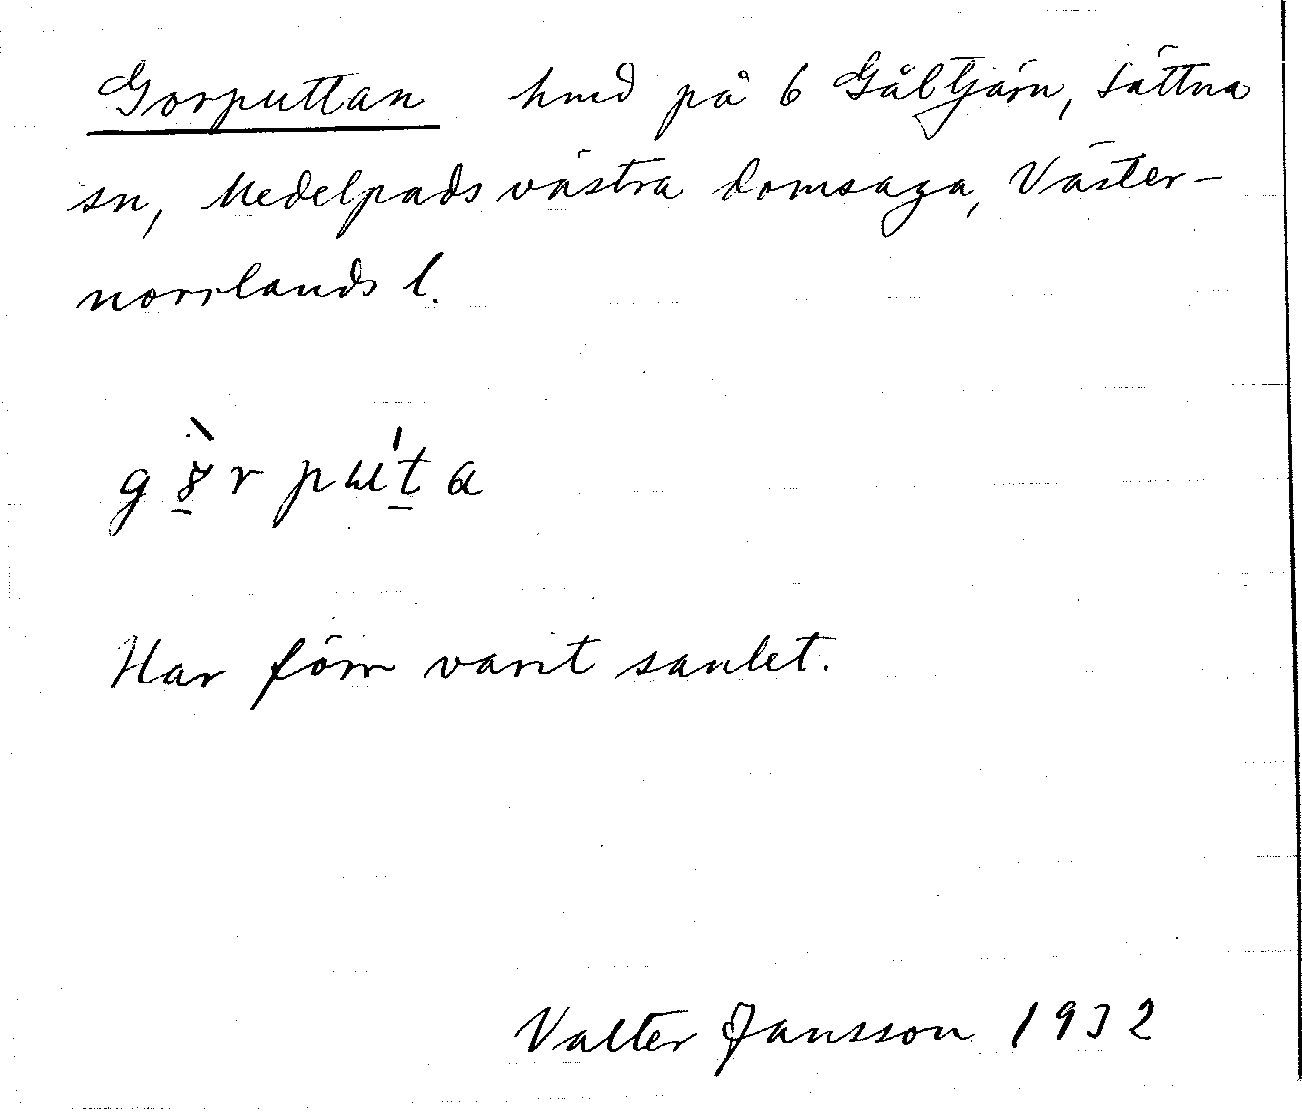 Gorputtan hmd på 6 Gåltjärn, Sättna
sn, Medelpads västra domsaga, Väster-
norrlands l.
Har förr varit sanket.
Valter Jansson 1932